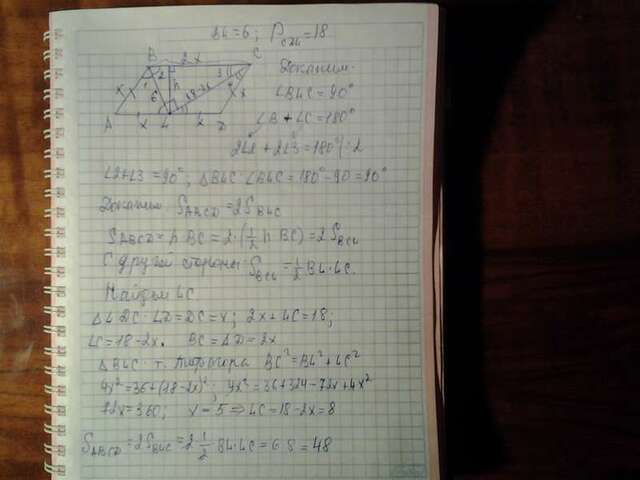 BL=6; P_CDL=18
B 2x C
A x L x D
Докажем
∠BLC=90°
∠B+∠C=180°
2∠2+2∠3=180°|:2
∠2+∠3=90°, ΔBLC: ∠BLC=180°-90=90°
Докажем S_ABCD=2S_BLC
S_ABCD=h BC=2·(1/2 h BC)=2S_BCL
С другой стороны S_BCL=1/2 BL·LC.
Найдём LC.
ΔLDC: LD=DC=x; 2x+LC=18;
LC=18-2x. BC=AD=2x
ΔBLC: т. Пифагора BC²=BL²+LC²
4x²=36+(18-2x)²; 4x²=36+324-72x+4x²
72x=360; x=5⇒LC=18-2x=8
S_ABCD=2S_BLC=2·1/2·BL·LC=6·8=48